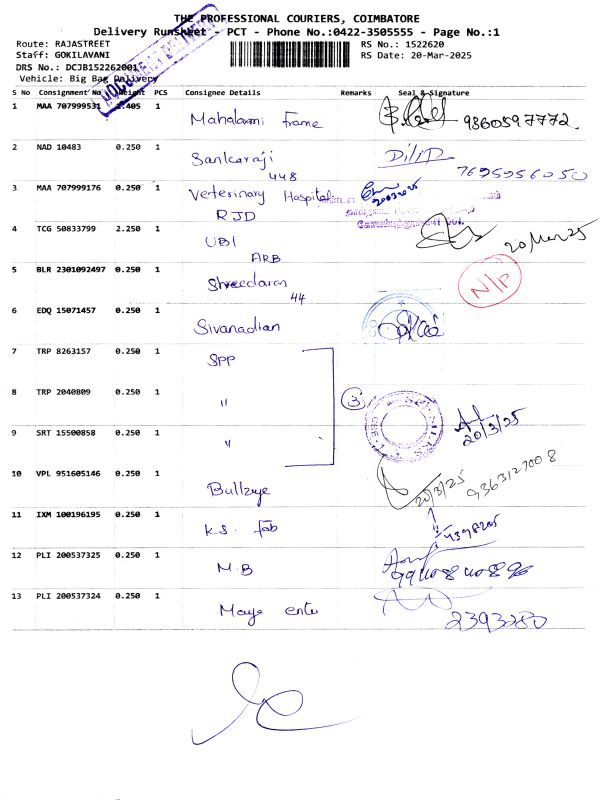 THE PROFESSIONAL COURIERS, COIMBATORE
Delivery Runsheet - PCT - Phone No.:0422-3505555 - Page No.:1
Route: RAJASTREET
Staff: GOKILAVANI
DRS No.: DCJB152262001
Vehicle: Big Bag Delivery
RS No.: 1522620
RS Date: 20-Mar-2025
DOCUMENT DELIVERY
S No Consignment No Weight PCS Consignee Details Remarks Seal & Signature
1 MAA 707999531 2.405 1 Mahalaxmi frame 9860597772
2 NAD 10483 0.250 1 Sankaraji 448 Dilip 7695956050
3 MAA 707999176 0.250 1 Veterinary Hospital RJD
4 TCG 50833799 2.250 1 UBI ARB 20/Mar/25
5 BLR 2301092497 0.250 1 Shreedaran 44 N/P
6 EDQ 15071457 0.250 1 Sivanadian
7 TRP 8263157 0.250 1 SPP
8 TRP 2040809 0.250 1 " 3
9 SRT 15500858 0.250 1 " 20/3/25
10 VPL 951605146 0.250 1 Bullzye 20/3/25 9363127008
11 IXM 100196195 0.250 1 K.S. fab
12 PLI 200537325 0.250 1 M.B
13 PLI 200537324 0.250 1 Maya ente 2393280